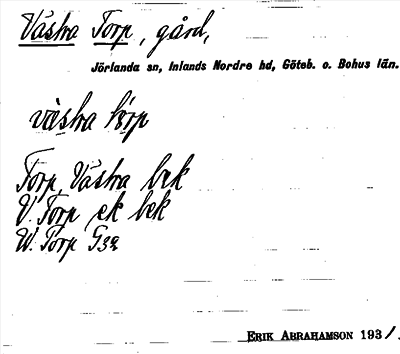 Västra Torp, gård,
Jörlanda sn, Inlands Nordre hd, Göteb. o. Bohus län.
västra törp
Torp, Västra bek
V. Torp ek bek
W. Torp G32
ERIK ABRAHAMSON 193/